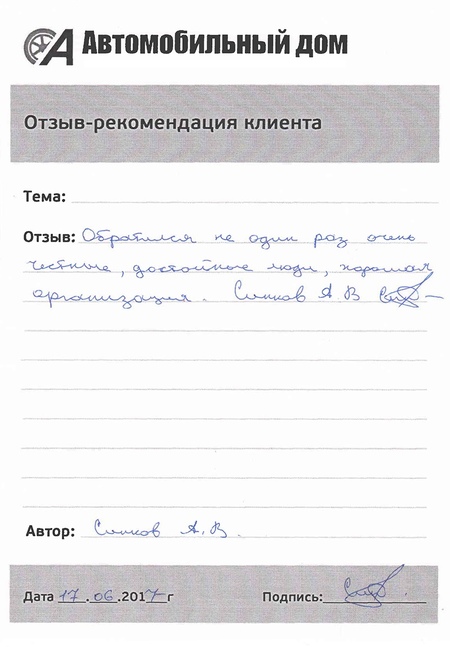 Автомобильный дом
Отзыв-рекомендация клиента
Тема:
Отзыв: Обратился не один раз очень
честные, достойные люди, хорошая
организация. Синков А В
Автор: Синков А.В.
Дата 17.06.2017г Подпись: